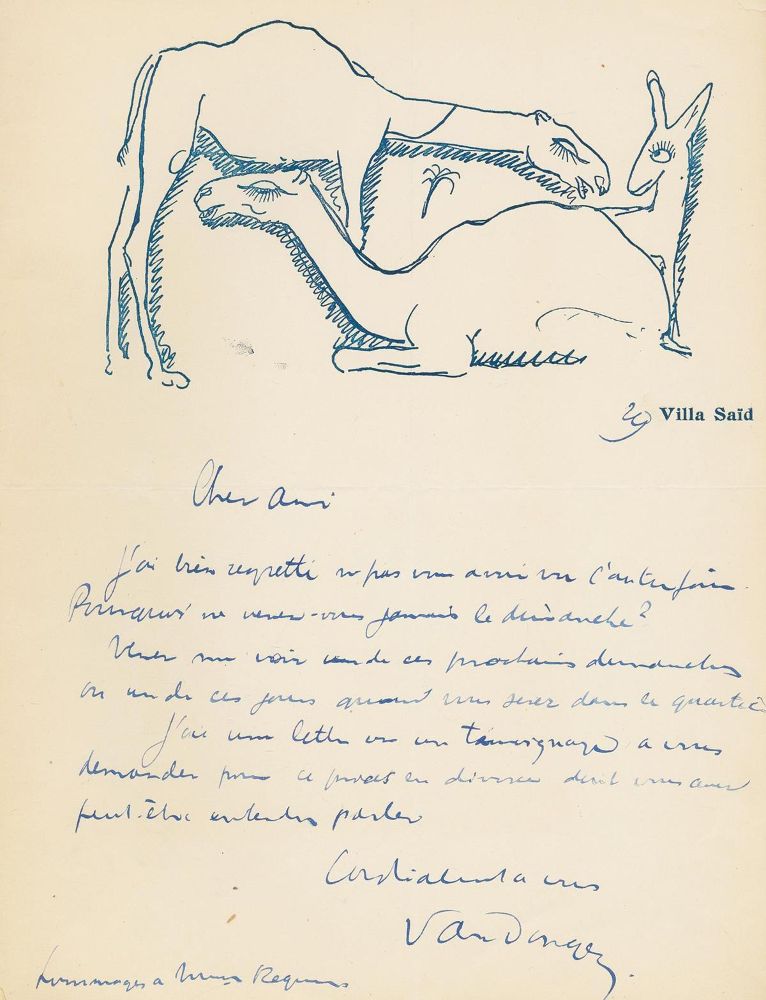 29 Villa Saïd
Cher ami
J'ai bien regretté ne pas vous avoir vu l'autre jour.
Pourquoi ne venez-vous jamais le dimanche?
Venez me voir un de ces prochains dimanches
ou un de ces jours quand vous serez dans le quartier
J'ai une lettre ou un témoignage a vous
demander pour ce procès en divorce dont vous avez
peut-être entendu parler
Cordialement a vous
Van Dongen.
hommages a Mme